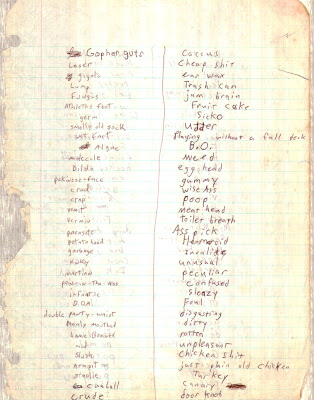 Gopher guts
Loser
gigolo
Lump
Fungus
Athletes foot
germ
smelly old sock
wet fart
Algae
molecule
Dildo
crud
crap
vomit
vermin
parasite
potato head
garbage
Kinky
martian
infantile
D.O.A.
double
Mealy mouthed
Slush
armpit
cueball
crude
Caucus
Cheap shit
ear wax
Trash can
jam brain
Fruit cake
Sicko
udder
Playing without a full deck
B.O.
weed
egg head
gummy
wise Ass
Poop
meat head
toilet breath
Ass pick
Hemroid
Invalide
unusual
peculiar
confused
Sleazy
Foul
disgusting
dirty
rotten
unpleasant
Chicken shit
just plain old chicken
Turkey
canary
door knob